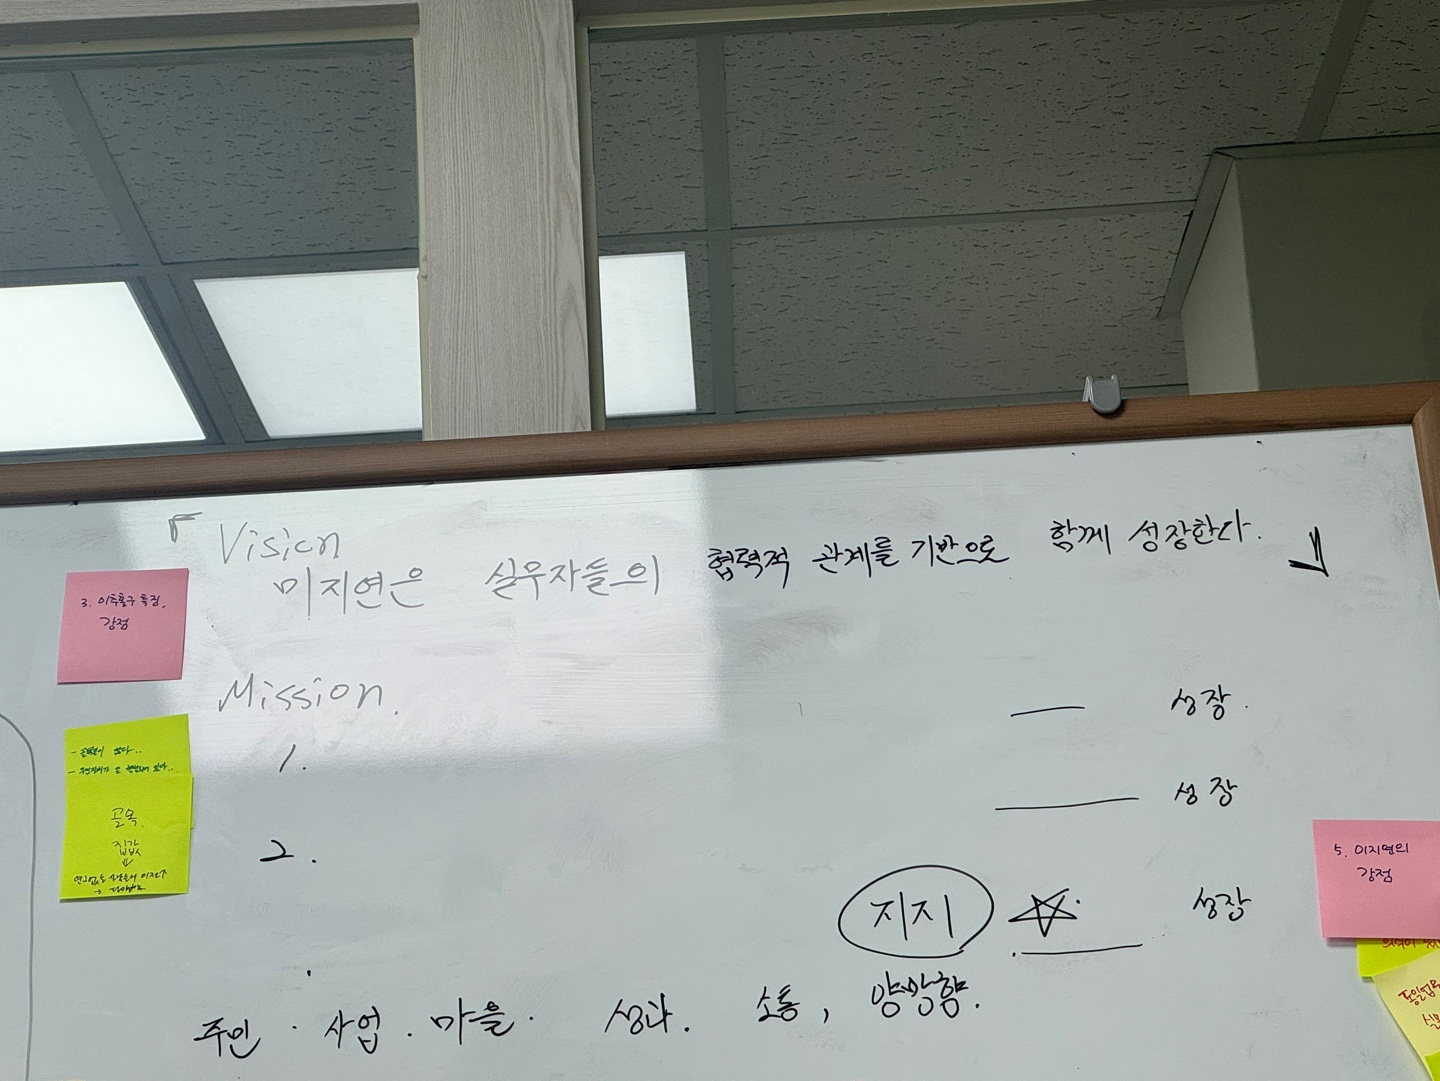 Vision
미지연은 실무자들의 협력적 관계를 기반으로 함께 성장한다.
3.
강점
Mission.
1.
성장.
2.
성장
지지 성장
주민. 사업. 마을. 성과. 소통, 양방향.
골목.
집값
5. 이지연의
강점